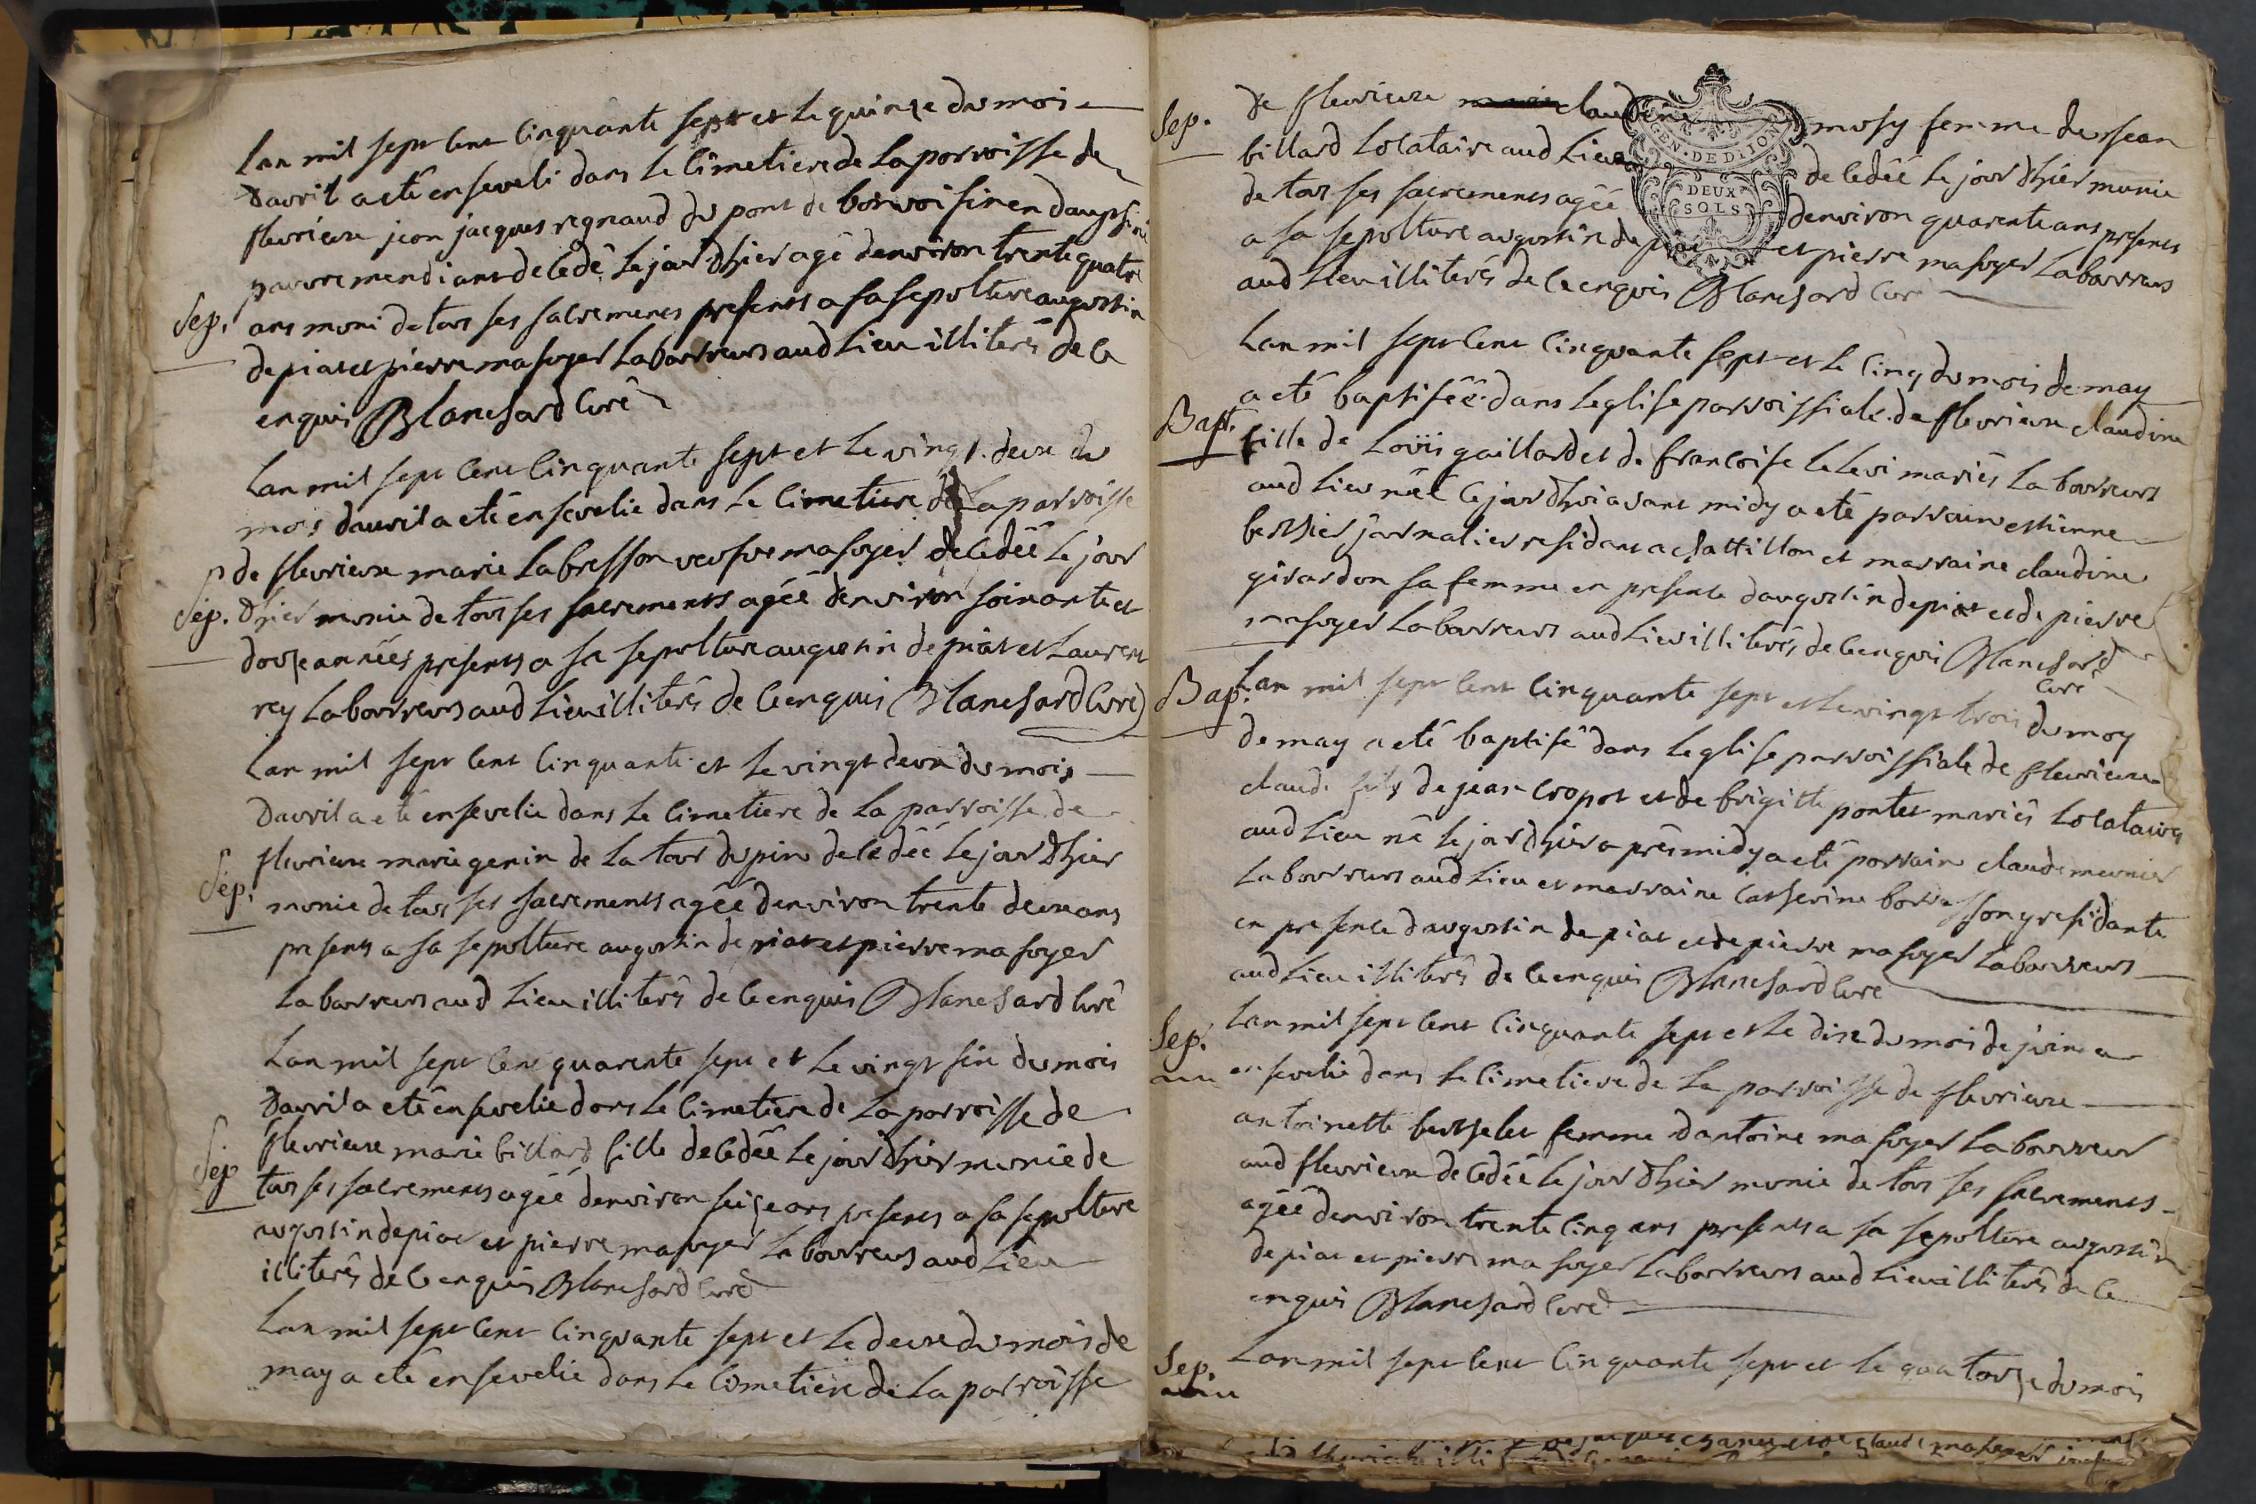 Lan mil sept cent cinquante sept et le quinze du mois
davril a eté enseveli dans le cimetiere de la parroisse de
fleurieux jean jacques regnaud du pont de bonvoisin en dauphiné
pauvre mendiant decedé le jour dhier agé denviron trente quatre
Sep.
ans muni de tous ses sacrements presents a sa sepolture augustin
depiat et pierre masoyer laboureurs aud lieu illiterés de ce
enquis Blanchard Curé
Lan mil sept cent cinquante sept et le vingt deux du
mois davril a eté ensevelie dans le cimetiere de la parroisse
de fleurieux marie labresson veufve masoyer decedéé le jour
Sep.
dhier munie de tous ses sacrements agéé denviron soixante et
douze années presents a sa sepolture augustin depiat et Laurent
rey laboureurs aud lieu illiterés de ce enquis Blanchard Curé
Lan mil sept cent cinquante et le vingt deux du mois
davril a eté ensevelie dans le cimetiere de la parroisse de
fleurieux marie genin de la tour du pin decedéé le jour dhier
Sep.
munie de tous ses sacrements agéé denviron trente deux ans
presents a sa sepolture augustin depiat et pierre masoyer
laboureurs aud lieu illiterés de ce enquis Blanchard Curé
Lan mil sept cent quarente sept et le vingt six du mois
davril a eté ensevelie dans le cimetiere de la parroisse de
fleurieux marie billard fille decedéé le jour dhier munie de
Sep
tous ses sacrements agéé denviron seize ans presents a sa sepolture
augustin depiat et pierre masoyer laboureurs aud lieu
illiterés de ce enquis Blanchard Curé
Lan mil sept cent cinquante sept et le deux du mois de
may a eté ensevelie dans le cimetiere de la parroisse
Sep.
de fleurieux claudine musy femme de jean
GEN. DE DIJON
DEUX
SOLS
billard locataire aud lieu decedéé le jour dhier munie
de tous ses sacrements agéé denviron quarente ans presents
a sa sepolture augustin depiat et pierre masoyer laboureurs
aud lieu illiterés de ce enquis Blanchard Curé
Lan mil sept cent cinquante sept et le cinq du mois de may
a eté baptiséé dans leglise parroissiale de fleurieux claudine
Bapt.
fille de Louis gaillard et de francoise mariés laboureurs
aud lieu néé le jour dhui avant midy a eté parrain estienne
berthier journalier residant a chatillon et marraine claudine
girardon sa femme en presence daugustin depiat et de pierre
masoyer laboureurs aud lieu illiterés de ce enquis Blanchard
Curé
Bap.
Lan mil sept cent cinquante sept et le vingt trois du moy
de may a eté baptisé dans leglise parroissiale de fleurieux
claude fils de jean cropot et de brigitte pontet mariés locataires
aud lieu né le jour dhier aprés midy a eté parrain claude meunier
laboureur aud lieu et marraine catherine y residante
en presence daugustin depiat et de pierre masoyer laboureurs
aud lieu illiterés de ce enquis Blanchard Curé
Sep.
Lan mil sept cent cinquante sept et le dix du mois de juin a
ensevelie dans le cimetiere de la parroisse de fleurieux
antoinette berthelet femme dantoine masoyer laboureur
aud fleurieux decedéé le jour dhier munie de tous ses sacrements
agéé denviron trente cinq ans presents a sa sepolture augustin
depiat et pierre masoyer laboureurs aud lieu illiterés de ce
enquis Blanchard Curé
Sep.
Lan mil sept cent cinquante sept et le quatorze du mois